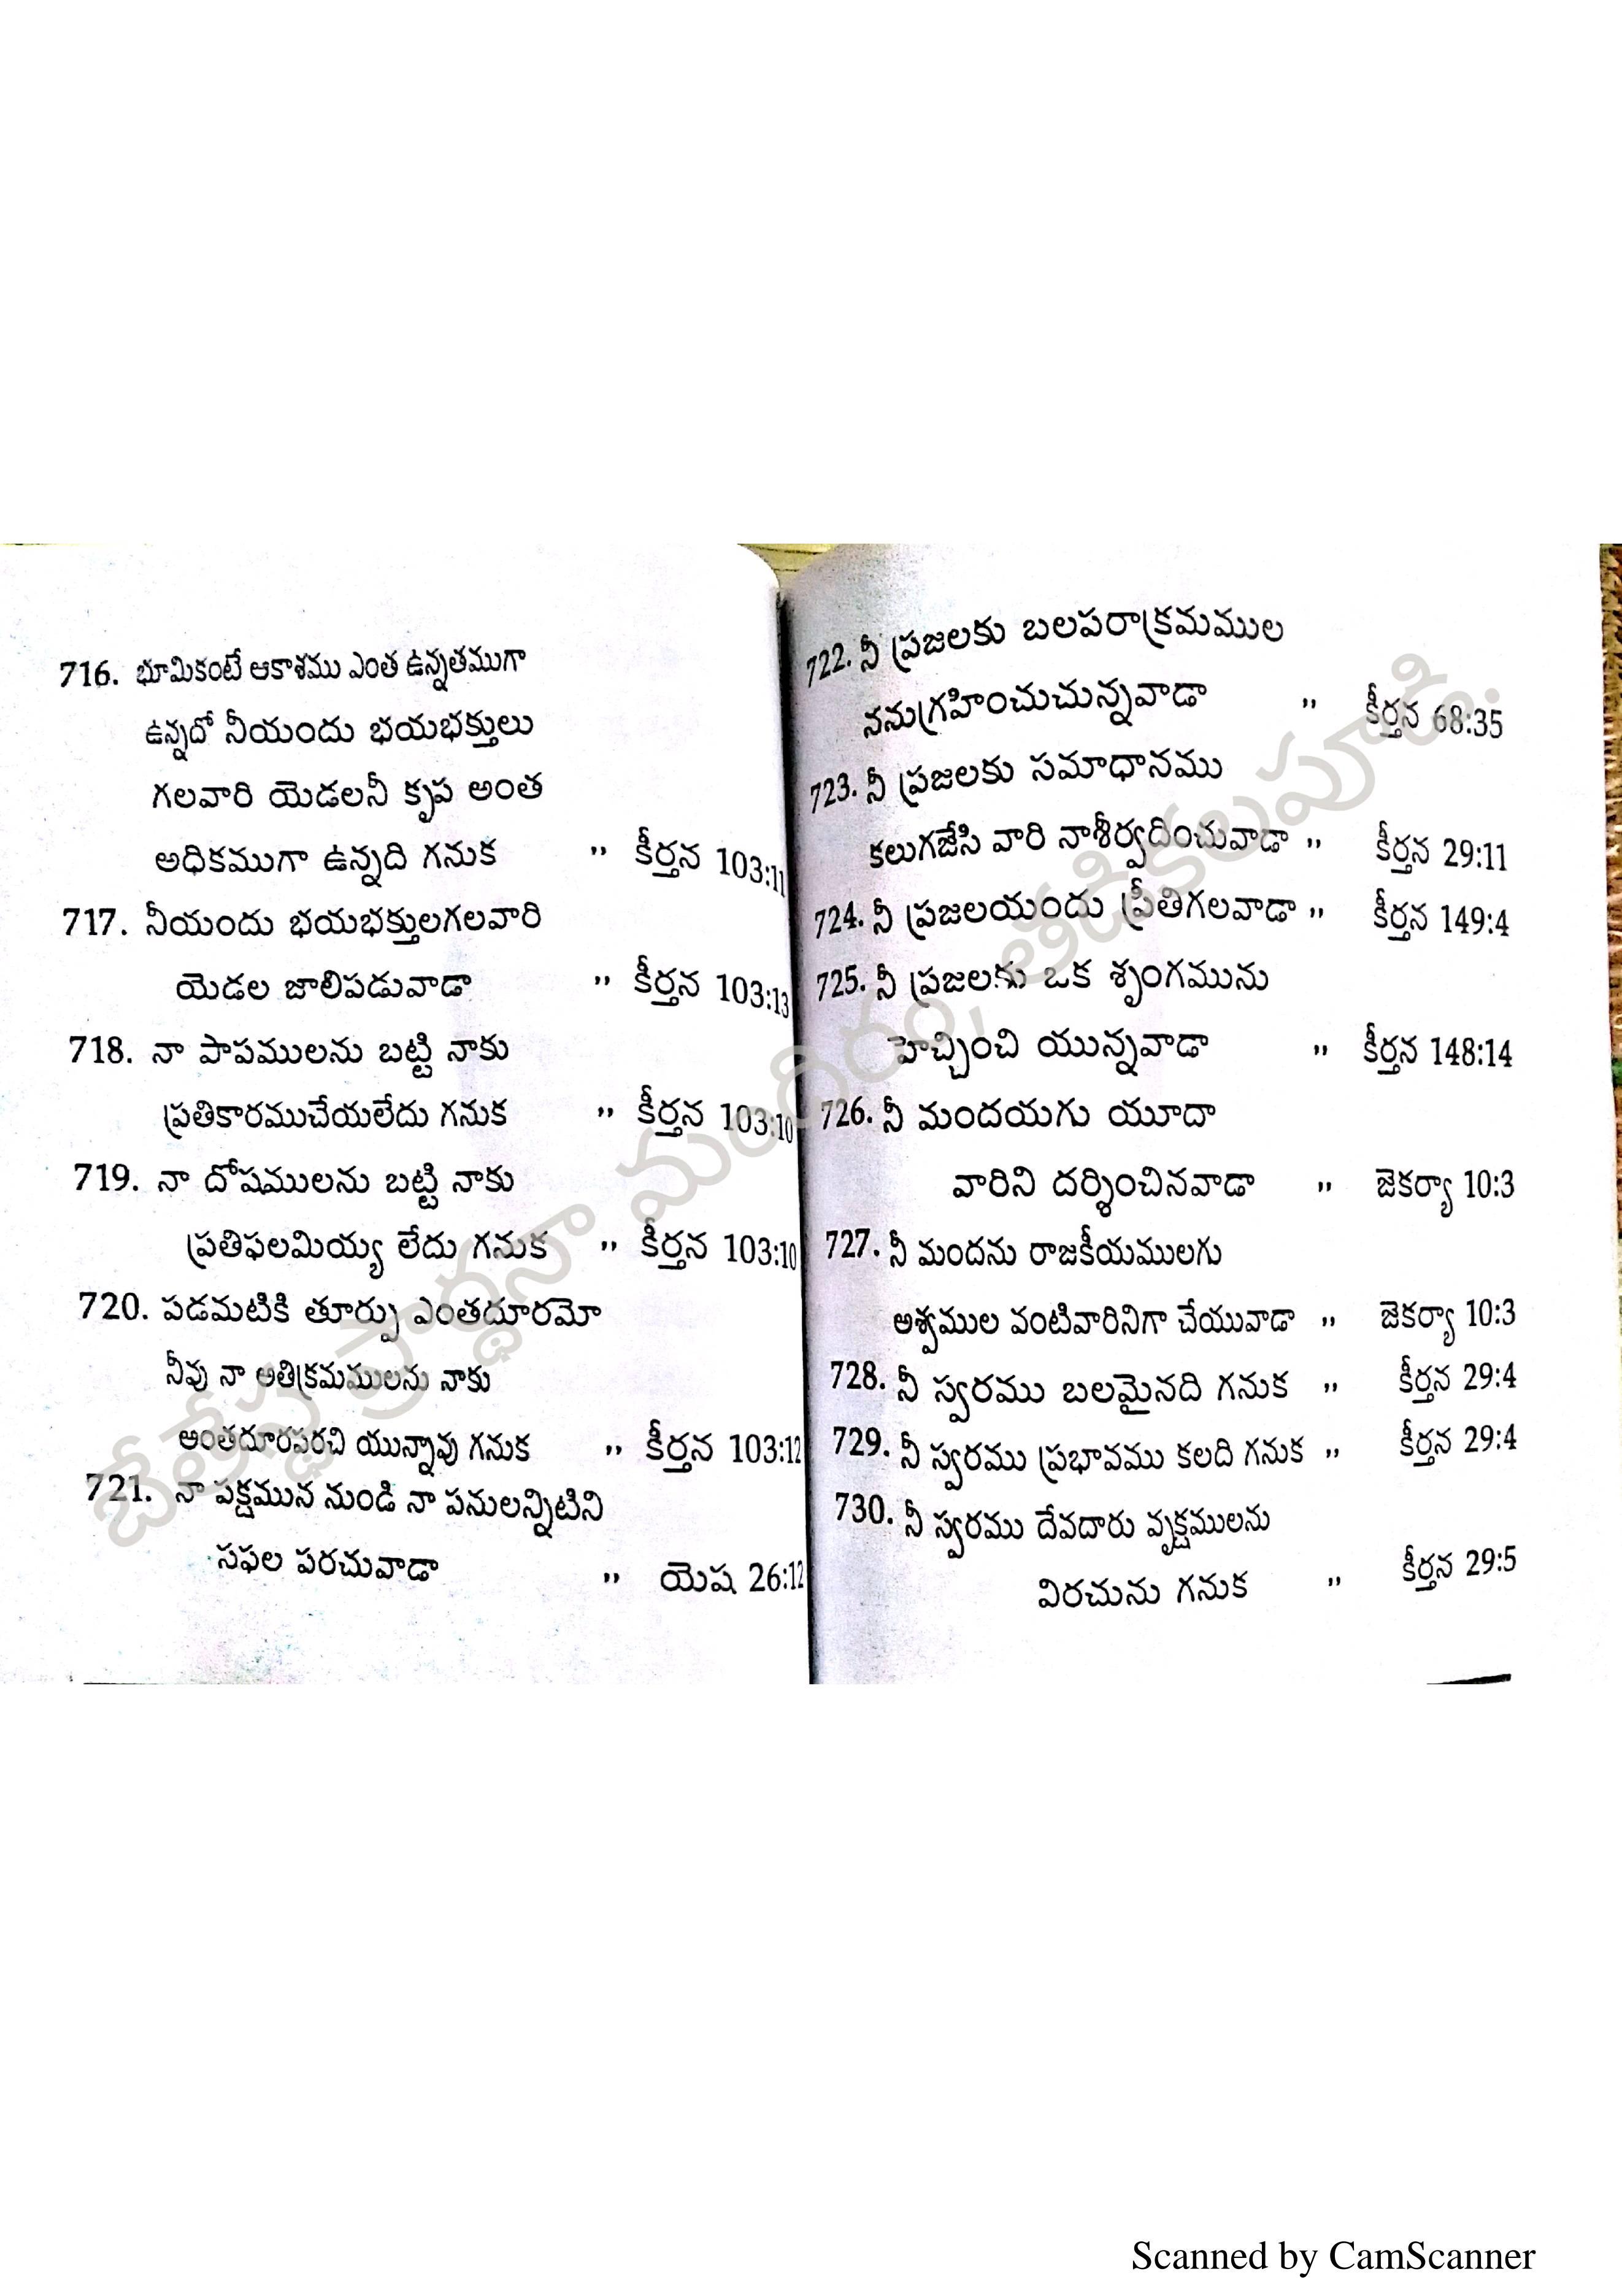 716. భూమికంటే ఆకాశము ఎంత ఉన్నతముగా
ఉన్నదో నీయందు భయభక్తులు
గలవారి యెడలనీ కృప అంత
అధికముగా ఉన్నది గనుక ,, కీర్తన 103:11
717. నీయందు భయభక్తులగలవారి
యెడల జాలిపడువాడా ,, కీర్తన 103:13
718. నా పాపములను బట్టి నాకు
ప్రతికారముచేయలేదు గనుక ,, కీర్తన 103:10
719. నా దోషములను బట్టి నాకు
ప్రతిఫలమియ్య లేదు గనుక ,, కీర్తన 103:10
720. పడమటికి తూర్పు ఎంతదూరమో
నీవు నా అతిక్రమములను నాకు
అంతదూరపరచి యున్నావు గనుక ,, కీర్తన 103:12
721. నా పక్షమున నుండి నా పనులన్నిటిని
సఫల పరచువాడా ,, యెష 26:12
722. నీ ప్రజలకు బలపరాక్రమముల
ననుగ్రహించుచున్నవాడా ,, కీర్తన 68:35
723. నీ ప్రజలకు సమాధానము
కలుగజేసి వారి నాశీర్వదించువాడా ,, కీర్తన 29:11
724. నీ ప్రజలయందు ప్రీతిగలవాడా ,, కీర్తన 149:4
725. నీ ప్రజలకు ఒక శృంగమును
హెచ్చించి యున్నవాడా ,, కీర్తన 148:14
726. నీ మందయగు యూదా
వారిని దర్శించినవాడా ,, జెకర్యా 10:3
727. నీ మందను రాజకీయములగు
అశ్వముల వంటివారినిగా చేయువాడా ,, జెకర్యా 10:3
728. నీ స్వరము బలమైనది గనుక ,, కీర్తన 29:4
729. నీ స్వరము ప్రభావము కలది గనుక ,, కీర్తన 29:4
730. నీ స్వరము దేవదారు వృక్షములను
విరచును గనుక ,, కీర్తన 29:5
ప్రార్థనా మందిరం, తాడికలపూడి.
Scanned by CamScanner